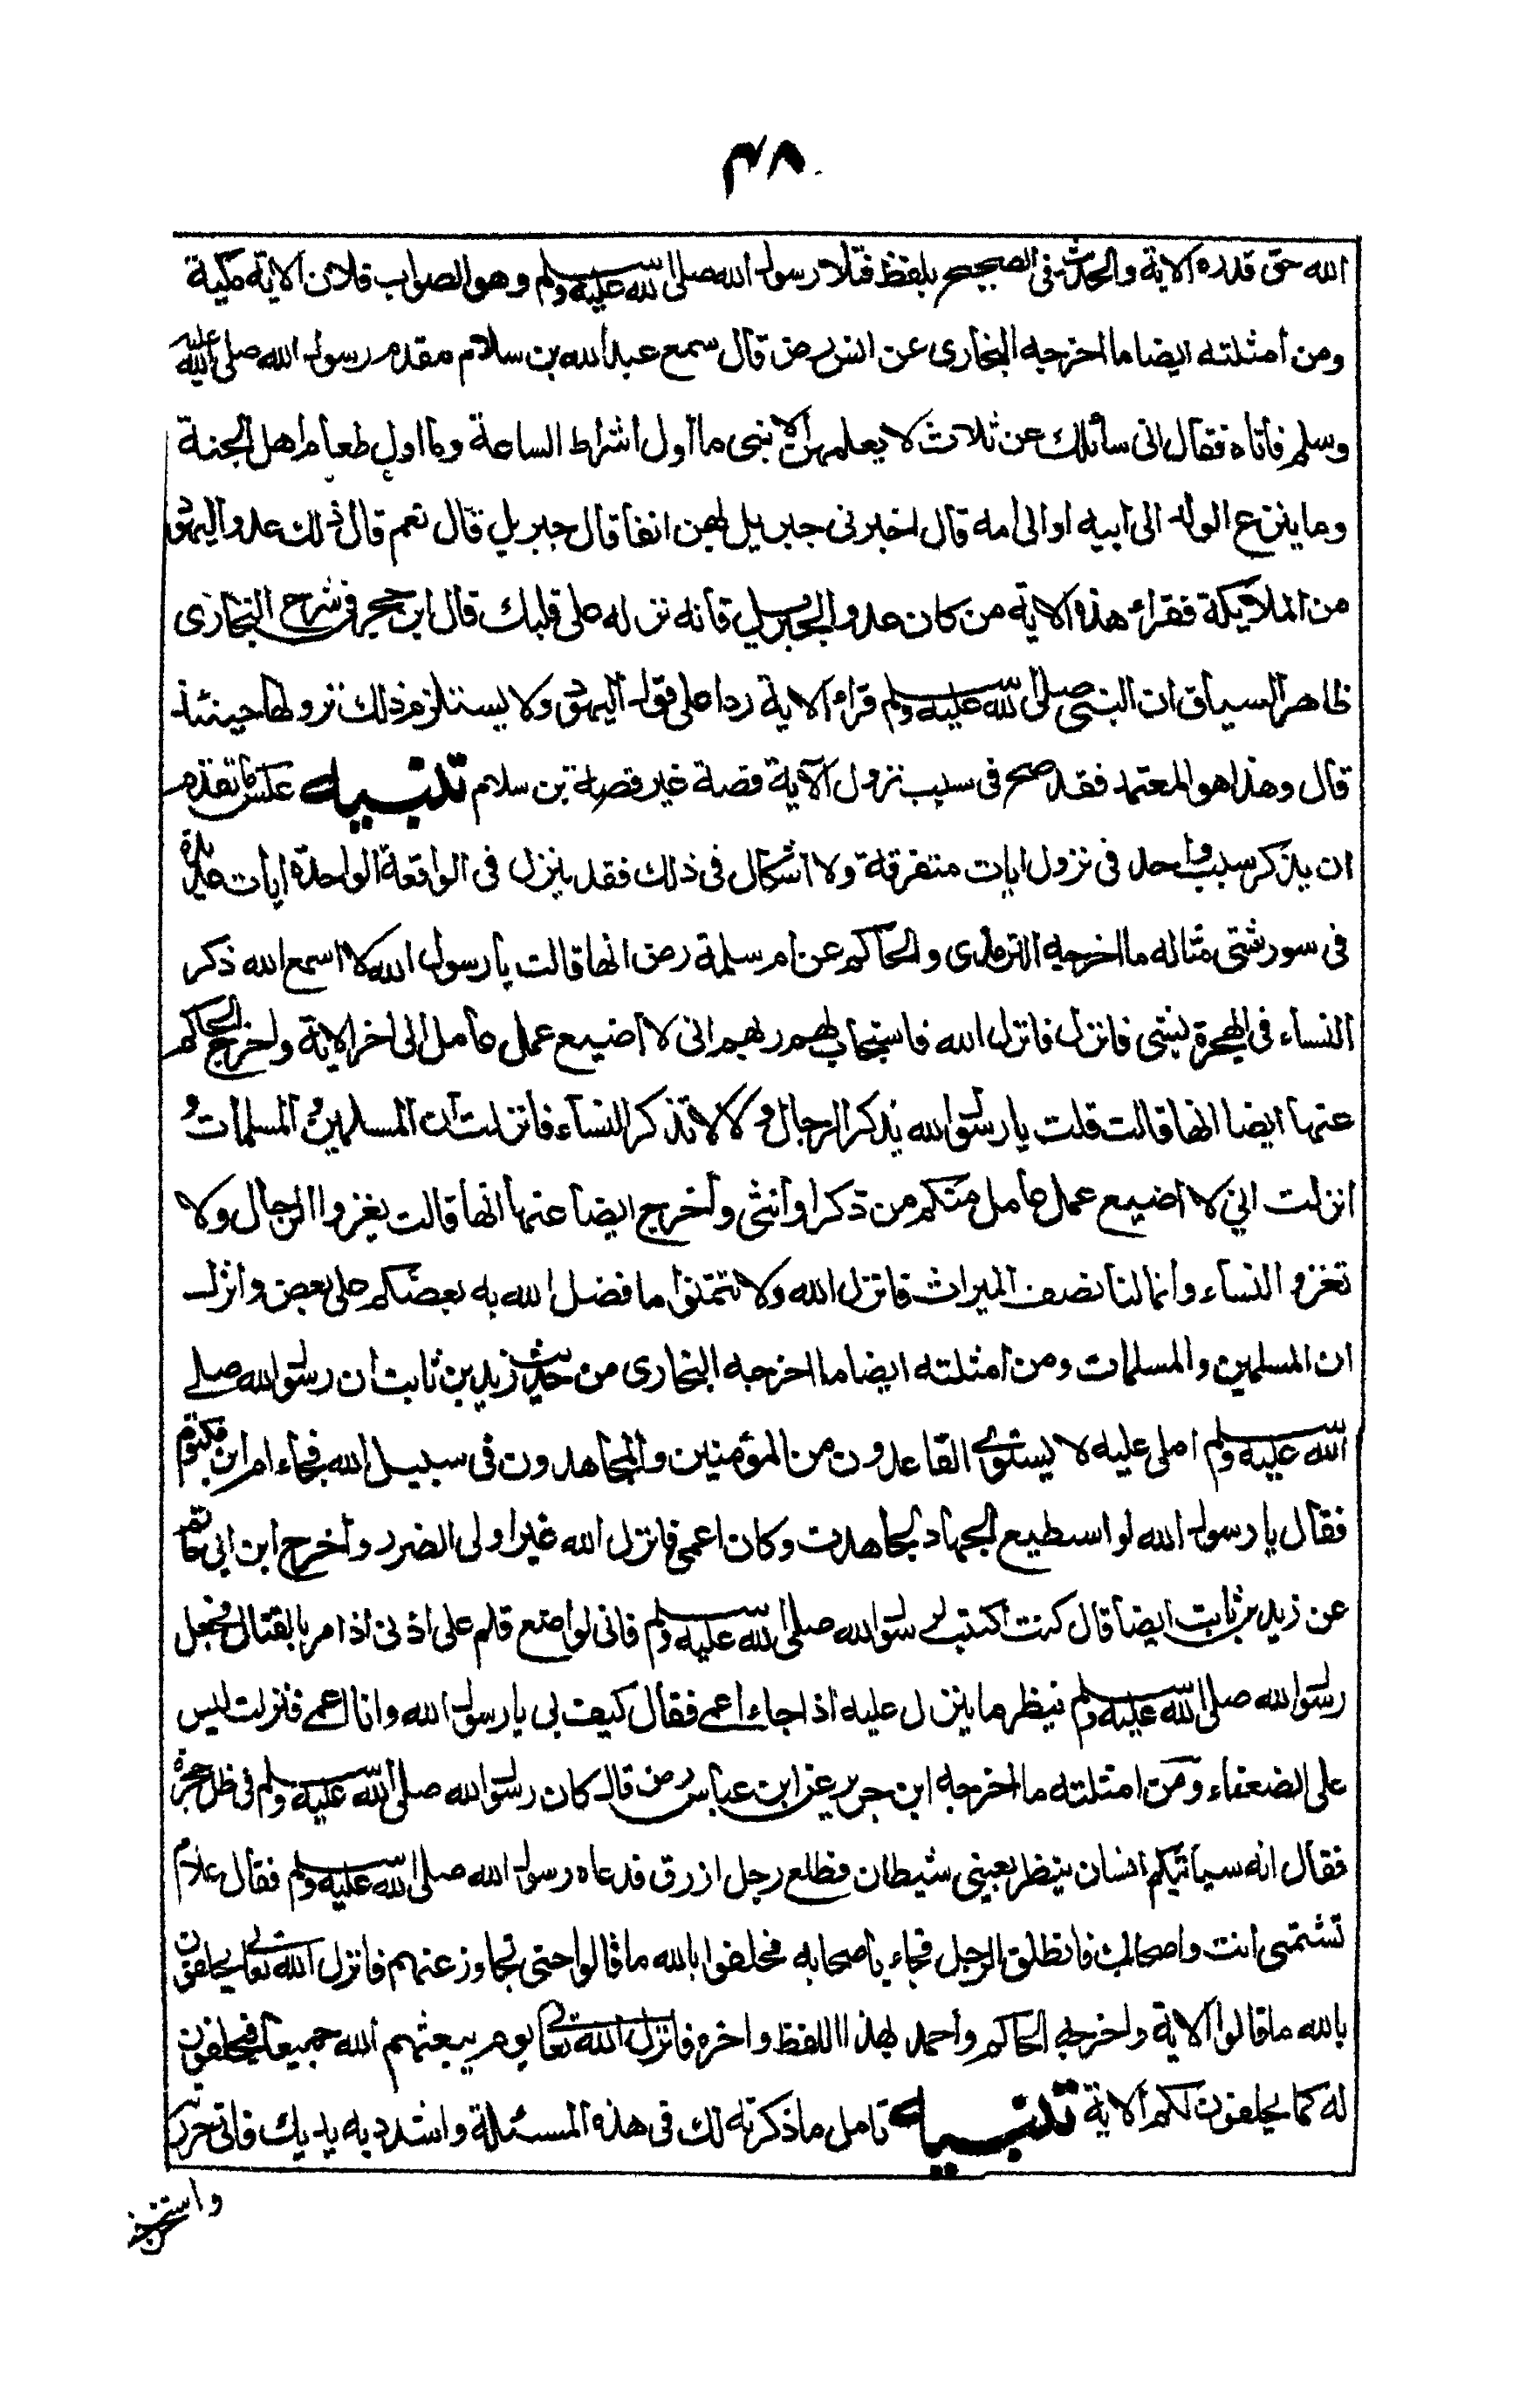 ٣٨
الله حق قدره الاية والحديث فى الصحيح بلفظ فتلا رسول الله صلى الله عليه وسلم وهو الصواب فلان الاية مكية
ومن أمثلته ايضا ما اخرجه البخارى عن انس رض قال سمع عبد الله بن سلام مقدم رسول الله صلى الله عليه
وسلم فأتاه فقال انى سائلك عن ثلاث لا يعلمهن الا نبى ما أول أشراط الساعة وما اول طعام اهل الجنة
وما ينزع الولد الى ابيه او الى امه قال اخبرنى جبريل بهن انفا قال جبريل قال نعم قال ذلك عدو اليهود
من الملايكة فقراء هذه الاية من كان عدوا لجبريل فانه نزله على قلبك قال ابن حجر فى شرح البخارى
ظاهر السياق ان النبى صلى الله عليه وسلم قراء الاية ردا على قول اليهود ولا يستلزم ذلك نزولها حينئذ
قال وهذا هو المعتمد فقد صح فى سبب نزول الآية قصة غير قصة بن سلام تنبيه عكس ما تقدم
ان يذكر سبب واحد فى نزول ايات متفرقة ولا اشكال فى ذلك فقد ينزل فى الواقعة الواحدة ايات عديدة
فى سور شتى مثاله ما اخرجه الترمذى والحاكم عن ام سلمة رض انها قالت يا رسول الله لا اسمع الله ذكر
النساء فى الهجرة بشى فانزل فانزل الله فاستجاب لهم ربهم انى لا اضيع عمل عامل الى اخر الاية واخرج الحاكم
عنها ايضا انها قالت قلت يا رسول الله يذكر الرجال و لا لا تذكر النساء فانزلت ان المسلمين والمسلمات و
انزلت اني لا اضيع عمل عامل منكم من ذكر او أنثى وأخرج ايضا عنها انها قالت يغزوا الرجال ولا
تغزو النساء وانما لنا نصف الميراث فانزل الله ولا تتمنوا ما فضل الله به بعضكم على بعض وانزل
ان المسلمين والمسلمات ومن امثلته ايضا ما اخرجه البخارى من حديث زيد بن ثابت أن رسول الله صلے
الله عليه وسلم املى عليه لا يستوى القاعدون من المؤمنين والمجاهدون فى سبيل الله فجاء ام ابن مكتوم
فقال يا رسول الله لو اسطيع الجهاد لجاهدت وكان اعمى فانزل الله غير اولى الضرر وأخرج ابن ابى حاتم
عن زيد بن ثابت ايضا قال كنت اكتب لرسول الله صلى الله عليه وسلم فانى لواضع قلم على اذنى اذ امر بالقتال فجعل
رسول الله صلى الله عليه وسلم ينظر ما ينزل عليه اذ اجاء أعمے فقال كيف لى يا رسول الله وانا اعمے فنزلت ليس
على الضعفاء ومن امثلته ما اخرجه ابن جرير عن ابن عباس رض قال كان رسول الله صلى الله عليه وسلم فى ظل حجرة
فقال انه سيأتيكم انسان ينظر بعينى شيطان فطلع رجل ازرق فدعاه رسول الله صلى الله عليه وسلم فقال علام
تشتمنى انت واصحابك فانطلق الرجل فجاء بأصحابه فحلفوا بالله ما قالوا حتى تجاوز عنهم فانزل الله تعالى يحلفون
بالله ما قالوا الاية واخرجه الحاكم وأحمد بهذا اللفظ واخره فانزل الله تعالى يوم يبعثهم الله جميعا فيحلفون
له كما يحلفون لكم الاية تنبيه تامل ما ذكرته لك فى هذه المسئلة واشدد به يديك فانى حررته
واستخرجته